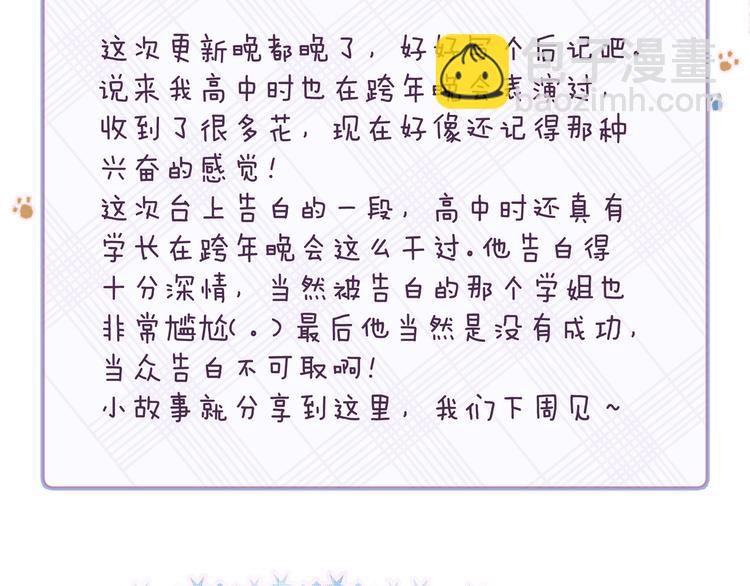 这次更新晚都晚了，好好写个后记吧。
说来我高中时也在跨年晚会表演过，
收到了很多花，现在好像还记得那种
兴奋的感觉！
这次台上告白的一段，高中时还真有
学长在跨年晚会这么干过。他告白得
十分深情，当然被告白的那个学姐也
非常尴尬(。)最后他当然是没有成功，
当众告白不可取啊！
小故事就分享到这里，我们下周见～
包子漫畫
baozimh.com